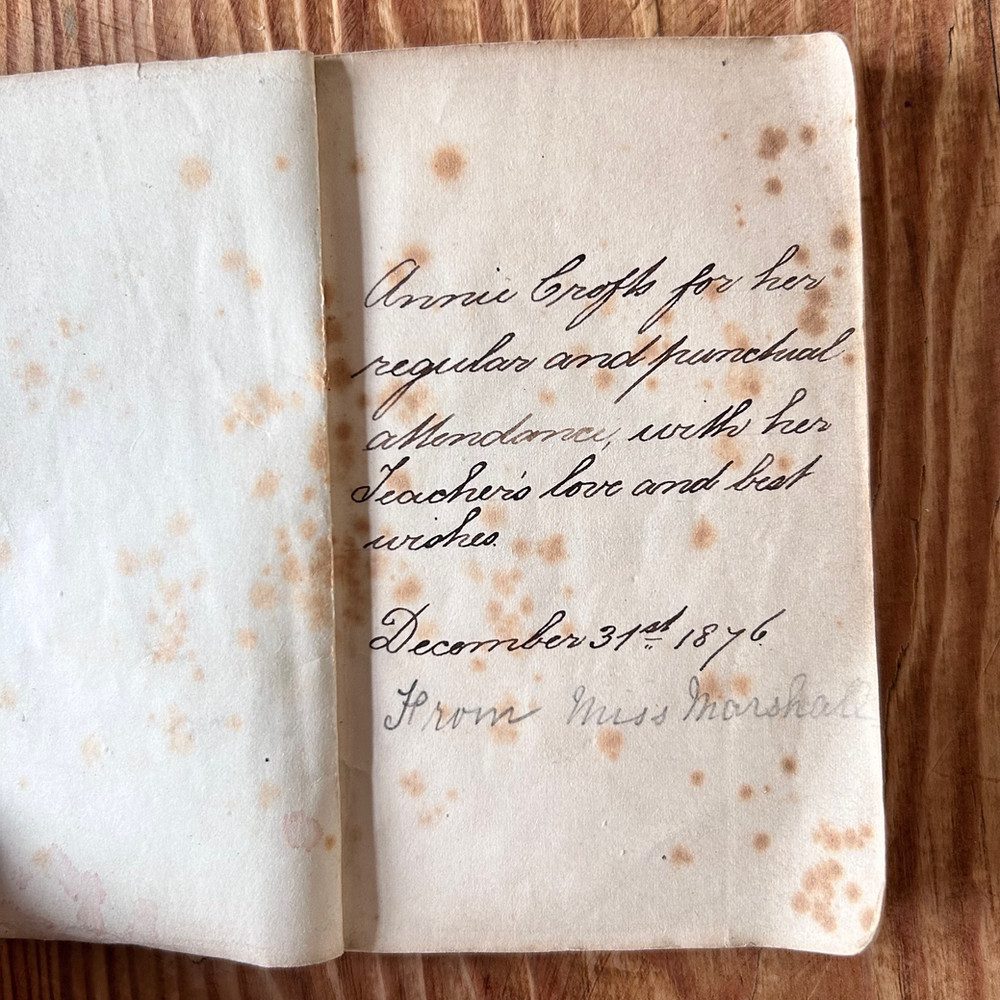 Annie Crofts for her
regular and punctual
attendance, with her
Teacher's love and best
wishes.
December 31st 1876.
From Miss Marshall